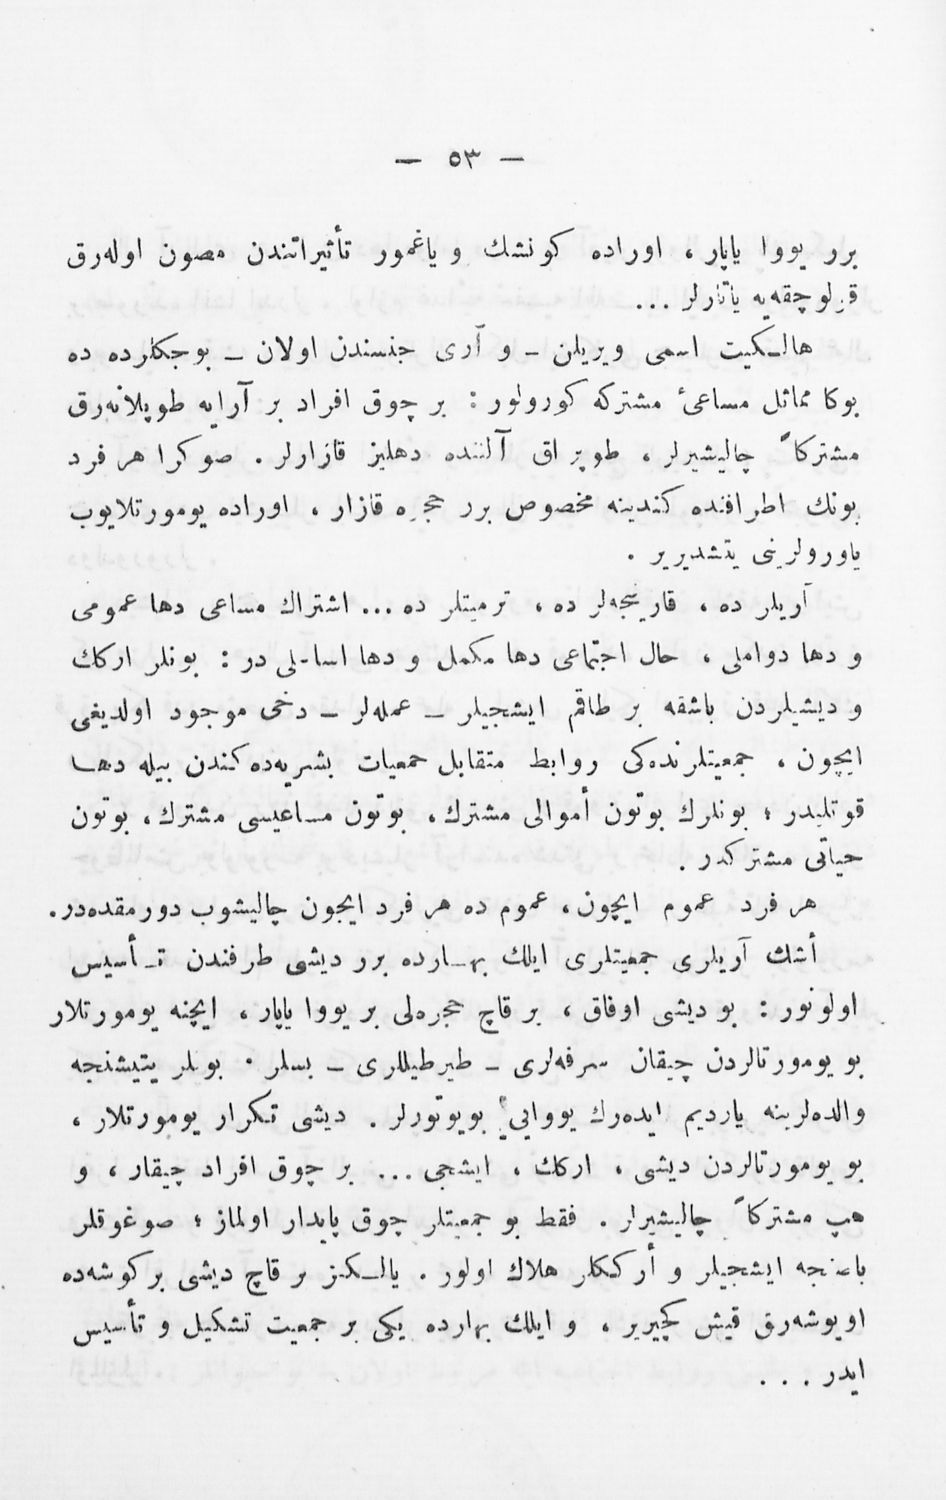 — ٥٣ —
برر يووا ياپار ، اوراده كونشك و ياغمور تأثيراتندن مصون اوله‌رق
قولوچقه‌يه ياتارلر ...
هالـكيت اسمى ويريلن ـ و آرى جنسندن اولان ـ بوجكلرده ده
بوكا مماثل مساعئ مشتركه كورولور : بر چوق افراد بر آرايه طوپلانه‌رق
مشتركاً چاليشيرلر ، طوپراق آلتنده دهليز قازارلر . صوكرا هر فرد
بونك اطرافنده كندينه مخصوص برر حجره قازار ، اوراده يومورتلايوب
ياورولرينى يتشديرير .
آريلر ده ، قارينجه‌لر ده ، ترميتلر ده ... اشتراك مساعى دها عمومى
و دها دواملى ، حال اجتماعى دها مكمل و دها اساسلى در : بونلر اركك
و ديشيلردن باشقه بر طاقم ايشجيلر ـ عمله‌لر ـ دخى موجود اولديغى
ايچون ، جمعيتلرنده‌كى روابط متقابل جمعيات بشريه‌ده‌كندن بيله دهـا
قوتليدر ؛ بونلرك بوتون أموالى مشترك ، بوتون مساعيسى مشترك ، بوتون
حياتى مشتركدر .
هر فرد عموم ايچون ، عموم ده هر فرد ايچون چاليشوب دورمقده‌در .
أشك آريلرى جمعيتلرى ايلك بهـارده برر ديشى طرفندن تـأسيس
اولونور : بو ديشى اوفاق ، بر قاچ حجره‌لى بر يووا ياپار ، ايچنه يومورتلار
بو يومورتالردن چيقان سرفه‌لرى ـ طيرطيللرى ـ بسلر . بونلر يتيشنجه
والده‌لرينه يارديم ايده‌رك يووايى بويوتورلر . ديشى تكرار يومورتلار ،
بو يومورتالردن ديشى ، اركك ، ايشجى ... بر چوق افراد چيقار ، و
هپ مشتركاً چاليشيرلر . فقط بو جمعيتلر چوق پايدار اولماز ؛ صوغوقلر
باصنجه ايشجيلر و أرككلر هلاك اولور . يالـكز بر قاچ ديشى بر كوشه‌ده
اويوشه‌رق قيش كچيرير ، و ايلك بهارده يكى بر جمعيت تشكيل و تأسيس
ايدر . . .